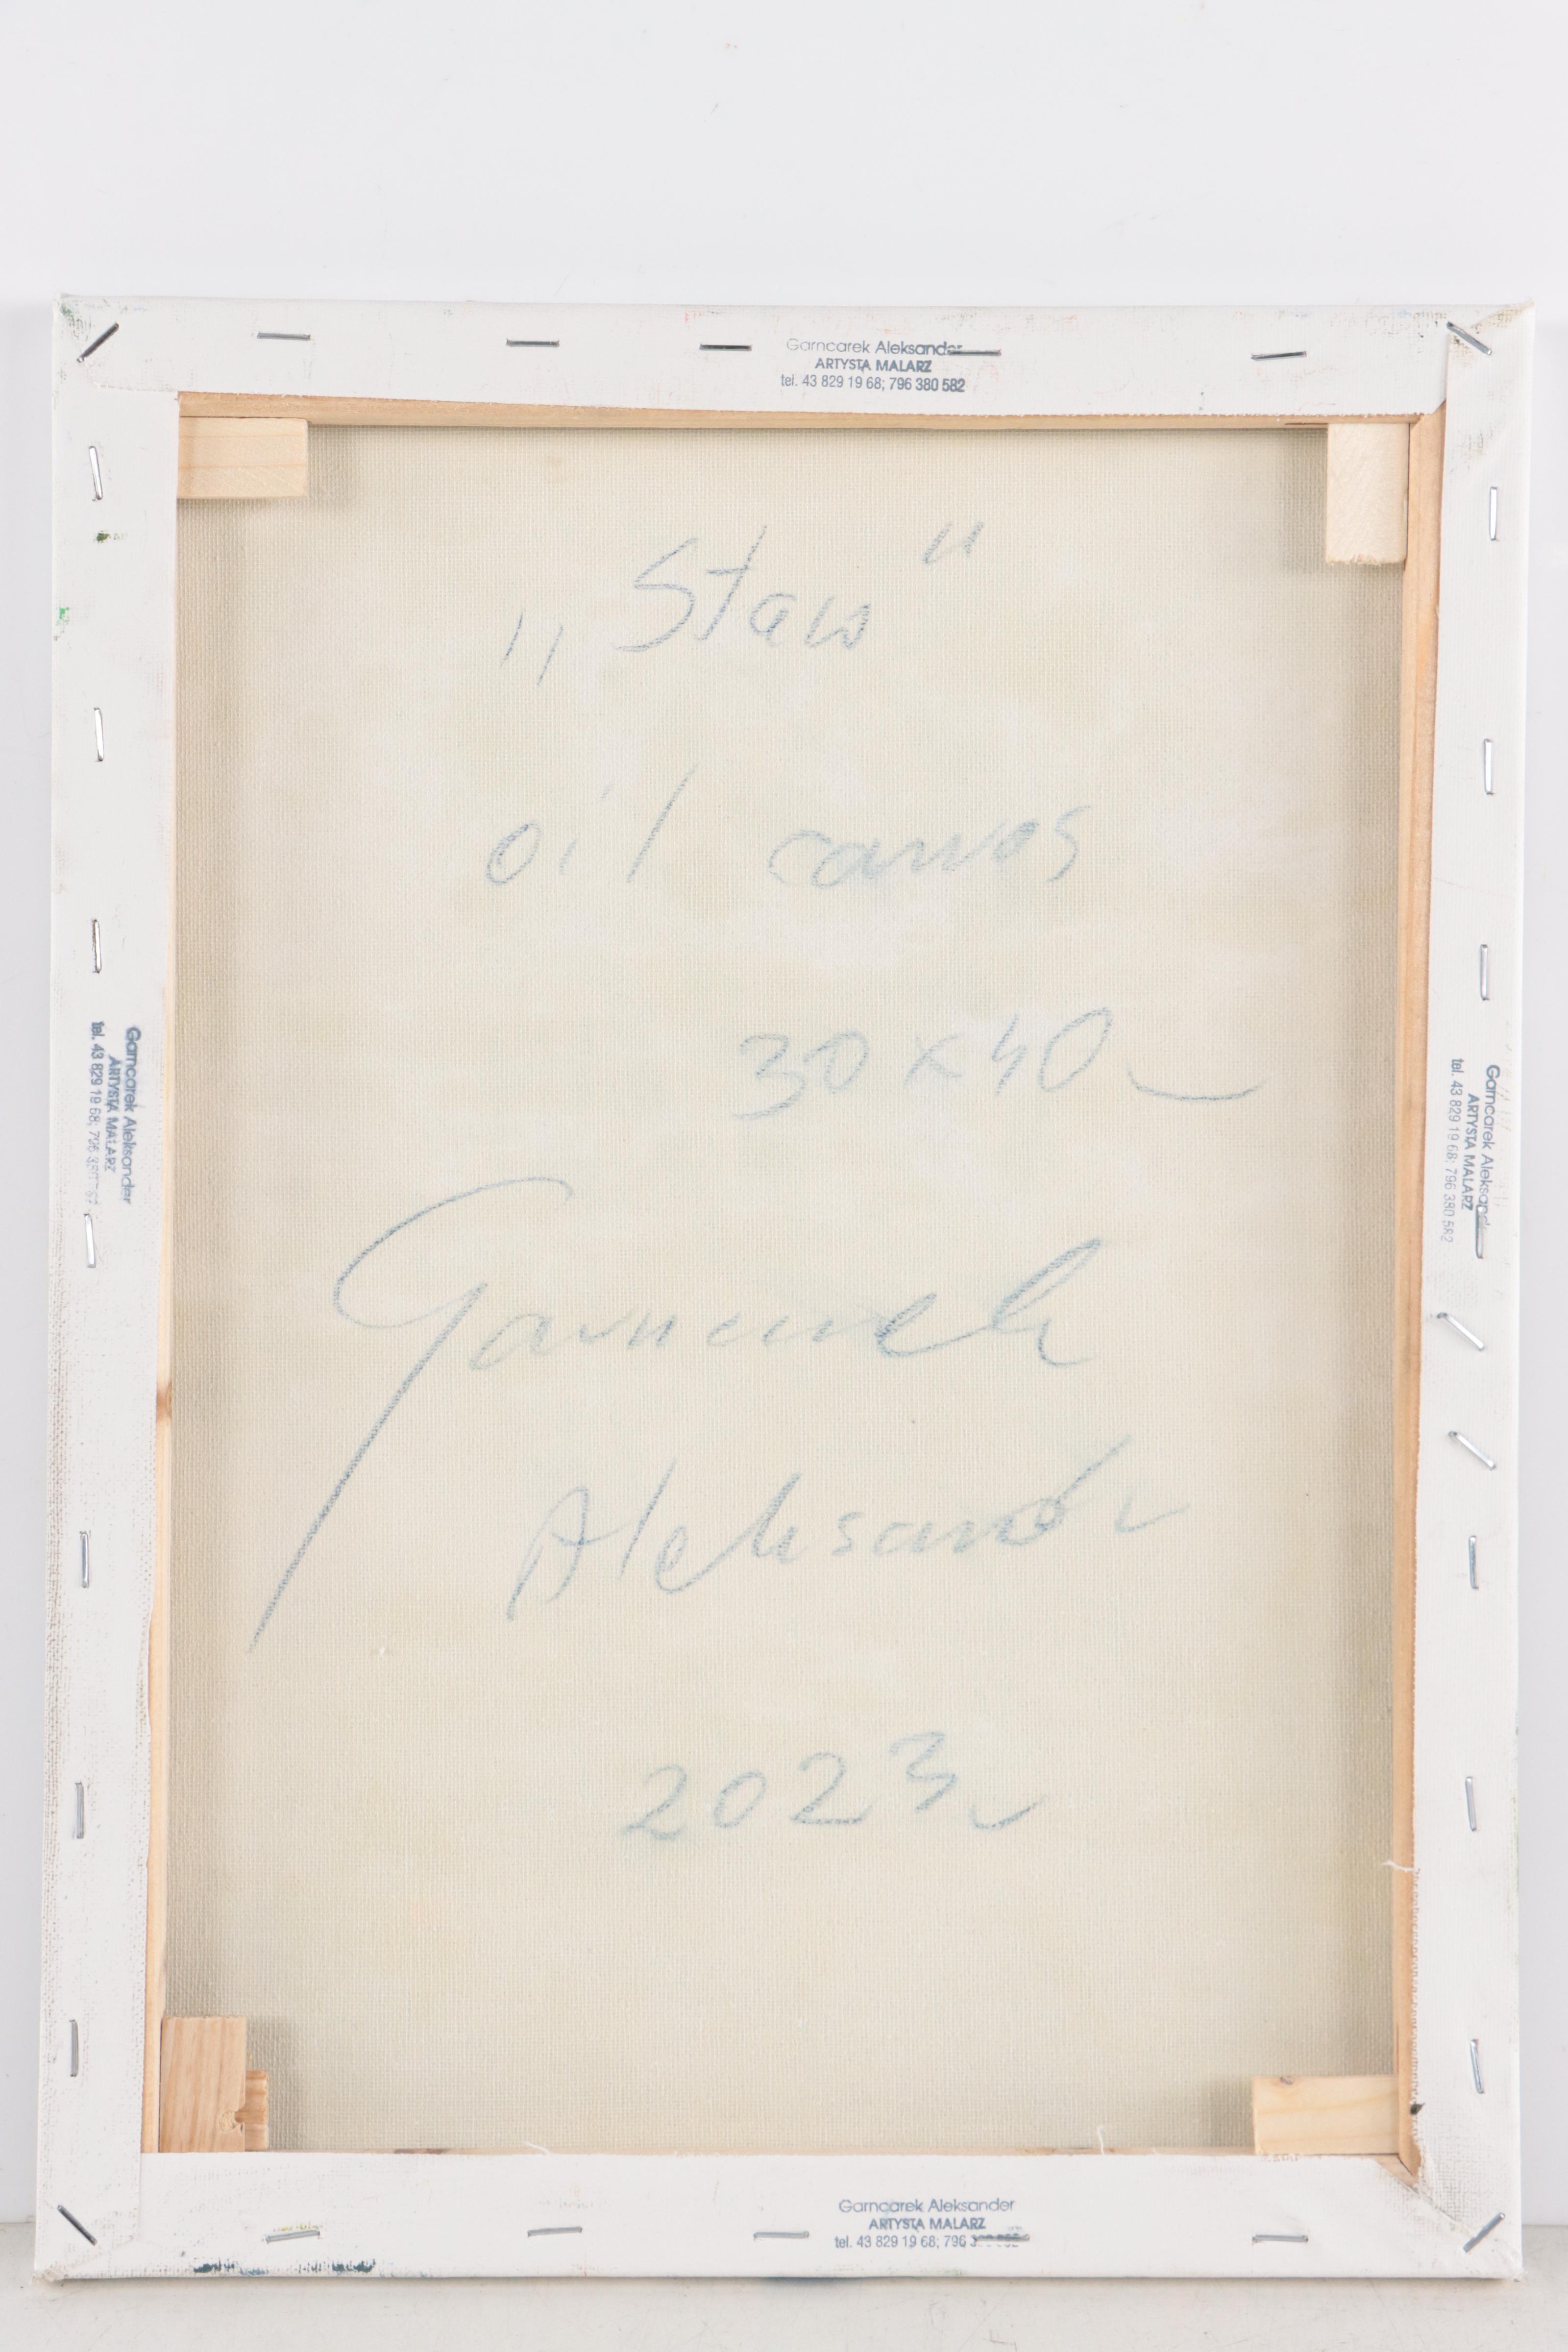 Garncarek Aleksander
ARTYSTA MALARZ
tel. 43 829 19 68; 796 380 582
„Staw"
oil canvas
30x40
Garncarek
Aleksander
2023
Garncarek Aleksander
ARTYSTA MALARZ
tel. 43 829 19 68; 796
Garncarek Aleksander
ARTYSTA MALARZ
tel. 43 829 19 68; 796 380 582
Garncarek Aleksander
ARTYSTA MALARZ
tel. 43 829 19 68; 796